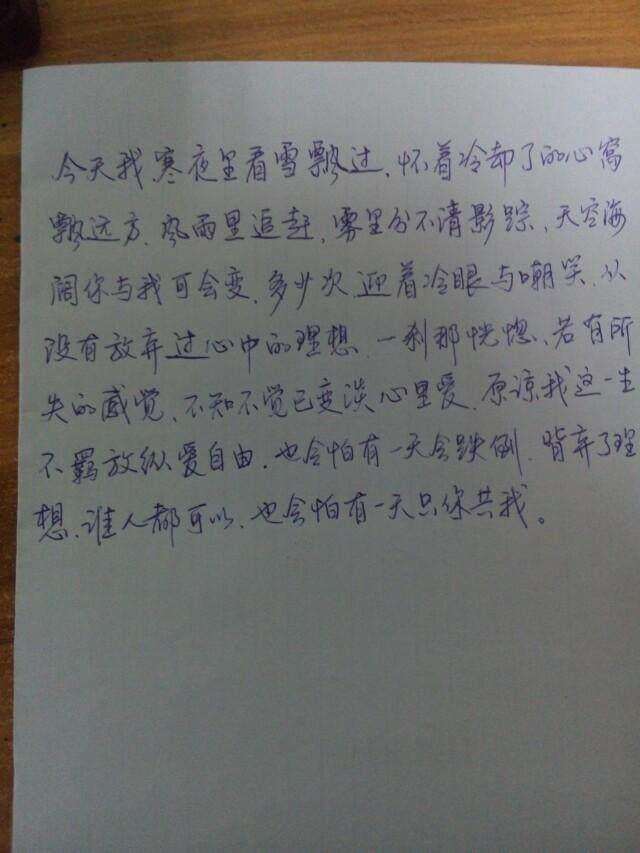 今天我、寒夜里看雪飘过、怀着冷却了的心窝
飘远方、风雨里追赶、雾里分不清影踪、天空海
阔你与我可会变、多少次、迎着冷眼与嘲笑、从
没有放弃过心中的理想、一刹那恍惚、若有所
失的感觉、不知不觉已变淡心里爱、原谅我这一生
不羁放纵爱自由、也会怕有一天会跌倒、背弃了理
想、谁人都可以、也会怕有一天只你共我。